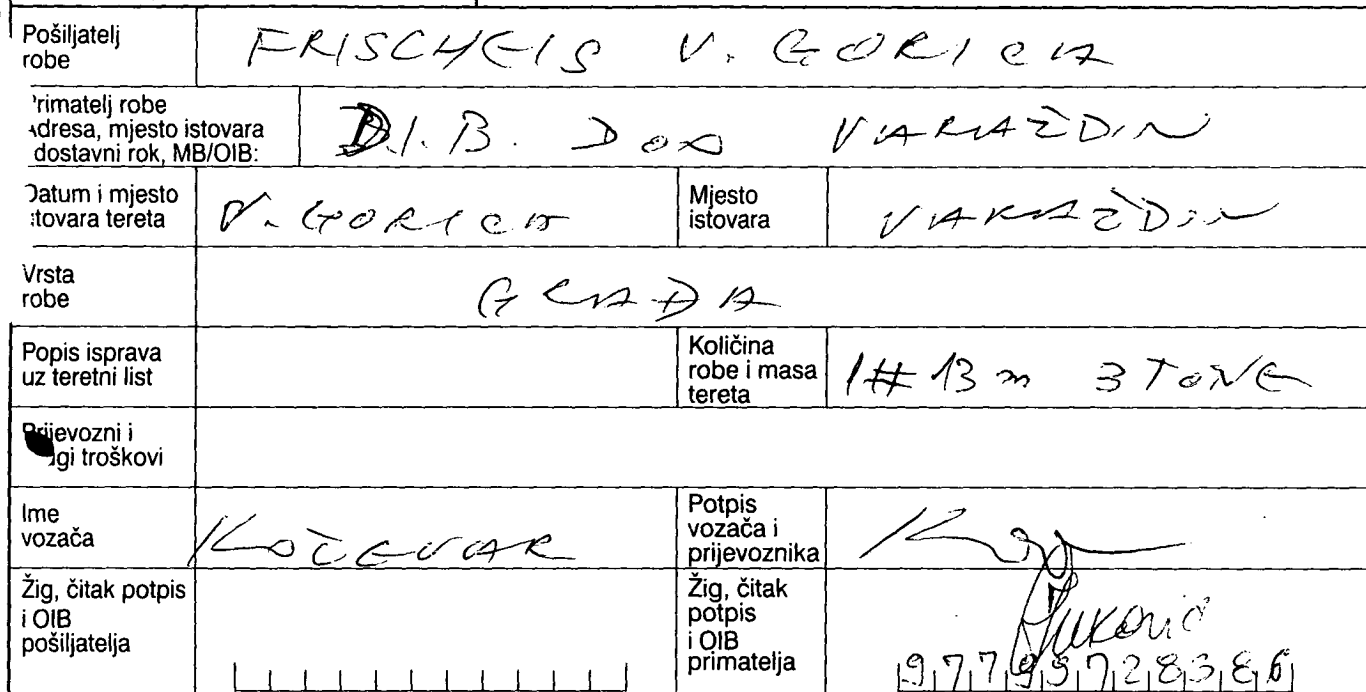 Pošiljatelj
robe
FRISCHEIS V. GORICA
rimatelj robe
dresa, mjesto istovara
dostavni rok, MB/OIB:
D.I.B. DOO VARAŽDIN
Datum i mjesto
tovara tereta
V. GORICA
Mjesto
istovara
VARAŽDIN
Vrsta
robe
GRAĐA
Popis isprava
uz teretni list
Količina
robe i masa
tereta
1# 13 m 3 TONE
Prijevozni i
gi troškovi
Ime
vozača
KOČEVAR
Potpis
vozača i
prijevoznika
Žig, čitak potpis
i OIB
pošiljatelja
Žig, čitak
potpis
i OIB
primatelja